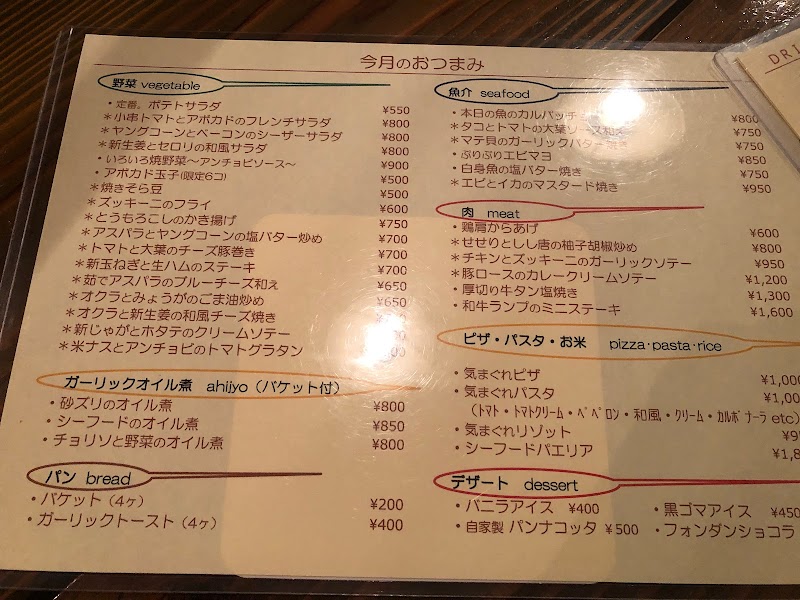 今月のおつまみ
野菜 vegetable
・定番。ポテトサラダ ¥550
＊小串トマトとアボカドのフレンチサラダ ¥800
＊ヤングコーンとベーコンのシーザーサラダ ¥800
＊新生姜とセロリの和風サラダ ¥800
・いろいろ焼野菜～アンチョビソース～ ¥900
・アボカド玉子(限定6コ) ¥500
＊焼きそら豆 ¥500
＊ズッキーニのフライ ¥600
＊とうもろこしのかき揚げ ¥750
＊アスパラとヤングコーンの塩バター炒め ¥700
＊トマトと大葉のチーズ豚巻き ¥700
＊新玉ねぎと生ハムのステーキ ¥700
＊茹でアスパラのブルーチーズ和え ¥650
＊オクラとみょうがのごま油炒め ¥650
＊オクラと新生姜の和風チーズ焼き
＊新じゃがとホタテのクリームソテー
＊米ナスとアンチョビのトマトグラタン
ガーリックオイル煮 ahijyo（バケット付）
・砂ズリのオイル煮 ¥800
・シーフードのオイル煮 ¥850
・チョリソと野菜のオイル煮 ¥800
パン bread
・バケット（4ヶ） ¥200
・ガーリックトースト（4ヶ） ¥400
魚介 seafood
・本日の魚のカルパッチョ ¥800
＊タコとトマトの大葉ソース和え ¥750
＊マテ貝のガーリックバター焼き ¥750
・ぷりぷりエビマヨ ¥850
・白身魚の塩バター焼き ¥750
＊エビとイカのマスタード焼き ¥950
肉 meat
・鶏肩からあげ ¥600
＊せせりとしし唐の柚子胡椒炒め ¥800
＊チキンとズッキーニのガーリックソテー ¥950
＊豚ロースのカレークリームソテー ¥1,200
・厚切り牛タン塩焼き ¥1,300
・和牛ランプのミニステーキ ¥1,600
ピザ・パスタ・お米 pizza・pasta・rice
・気まぐれピザ ¥1,000
・気まぐれパスタ
（ﾄﾏﾄ・ﾄﾏﾄｸﾘｰﾑ・ﾍﾟﾍﾟﾛﾝ・和風・ｸﾘｰﾑ・ｶﾙﾎﾞﾅｰﾗ etc)
・気まぐれリゾット
・シーフードパエリア
デザート dessert
・バニラアイス ¥400 ・黒ゴマアイス ¥450
・自家製 パンナコッタ ¥500 ・フォンダンショコラ